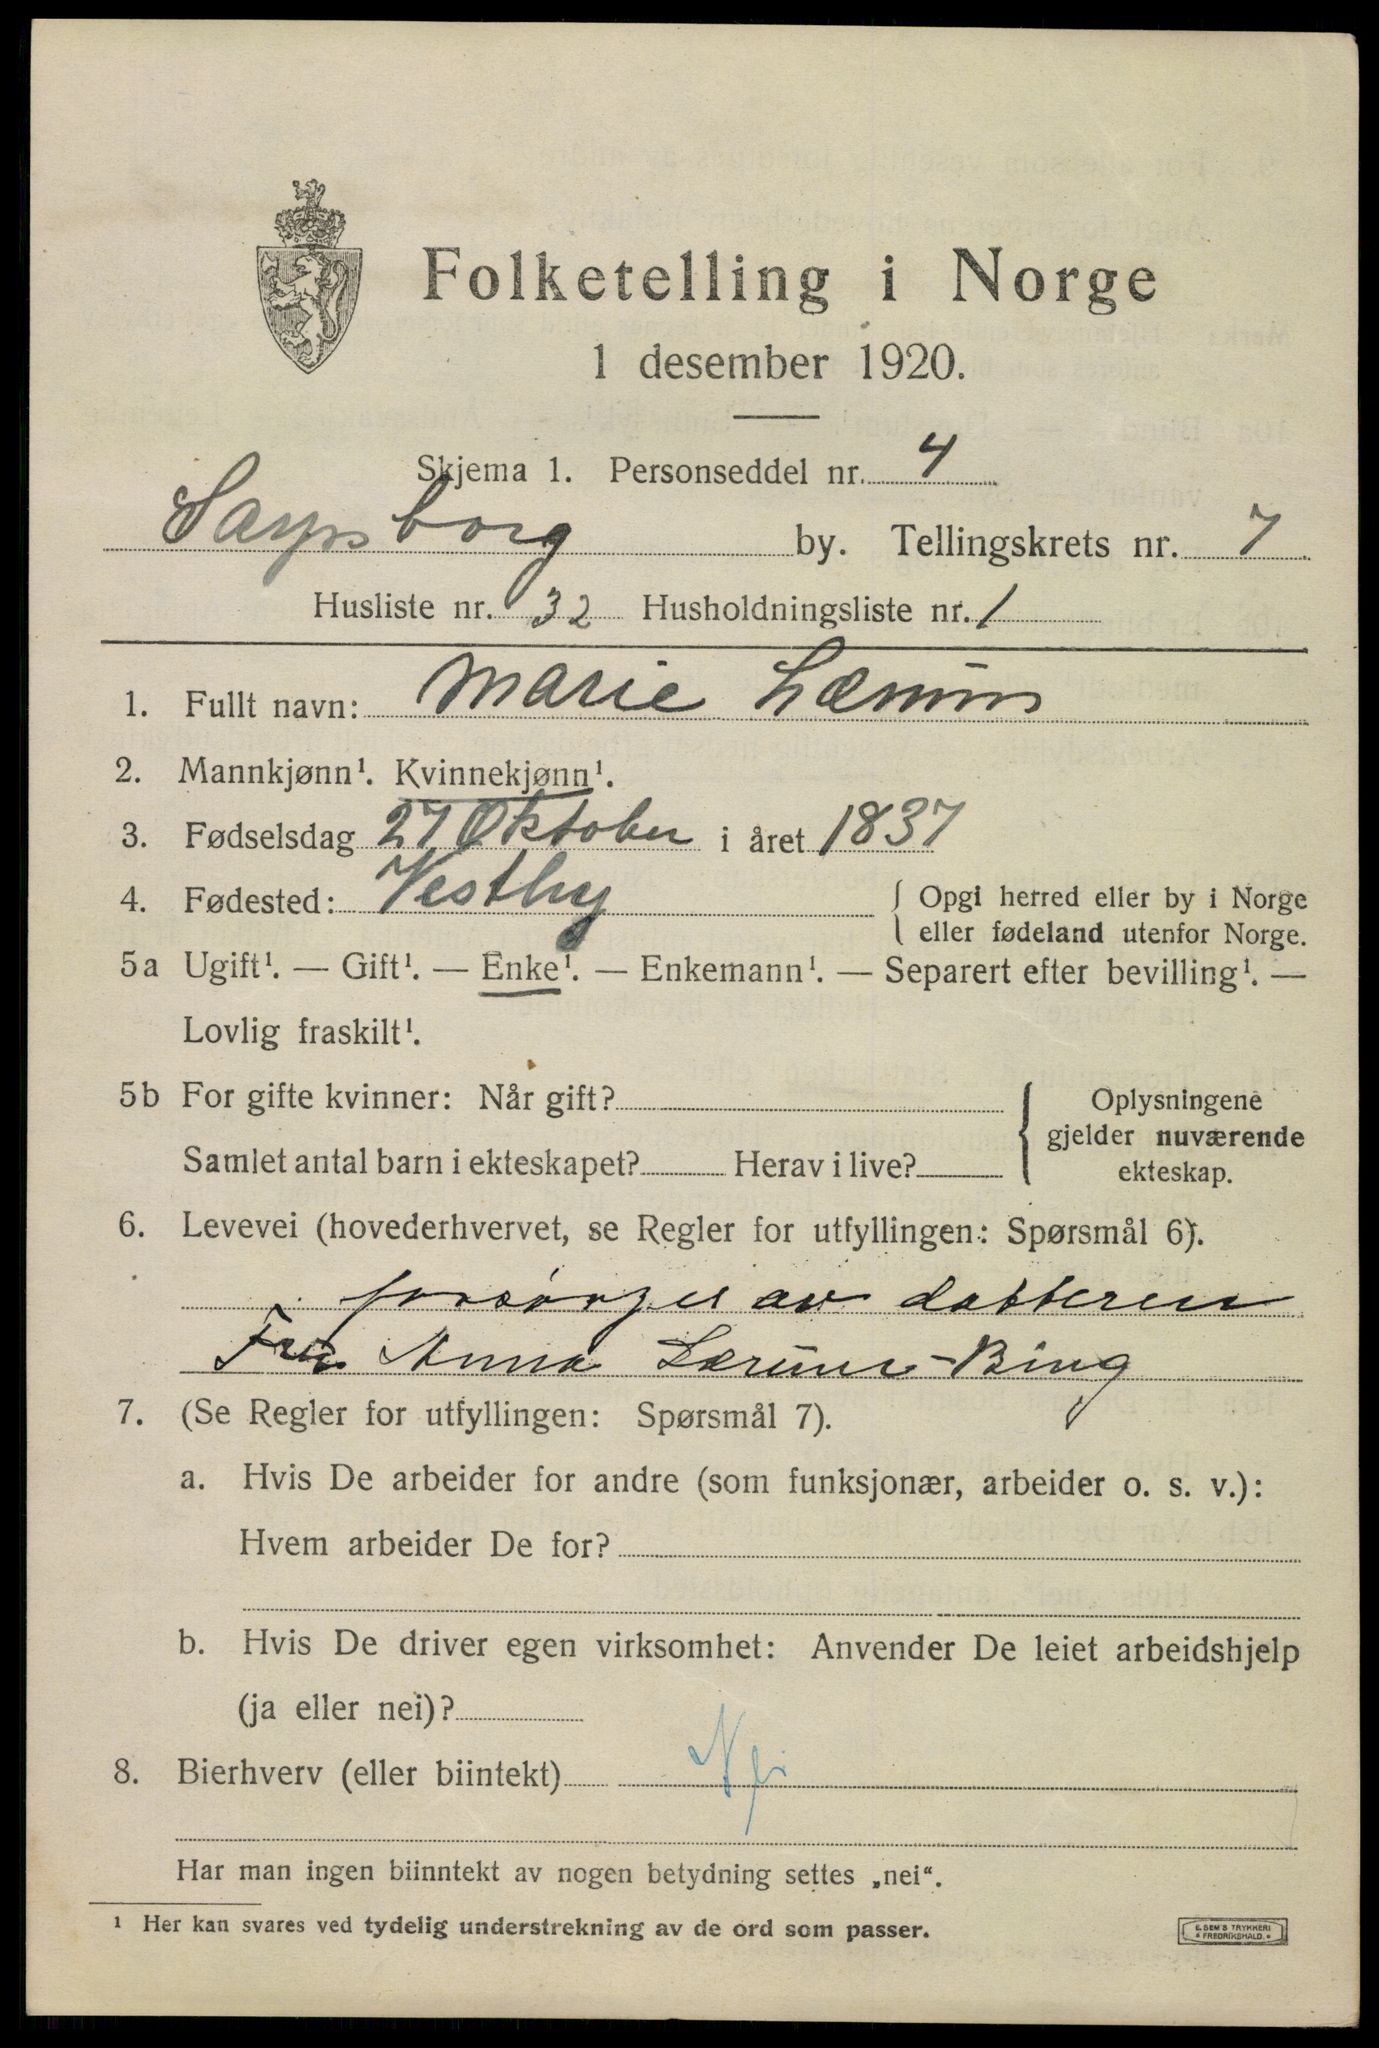 Folketelling i Norge
1 desember 1920.
Skjema 1. Personseddel nr. 4
Sarpsborg by. Tellingskrets nr. 7
Husliste nr. 32 Husholdningsliste nr. 1
1. Fullt navn: Marie
2. Mannkjønn¹. Kvinnekjønn¹.
3. Fødselsdag 27 Oktober i året 1837
4. Fødested: Vestby { Opgi herred eller by i Norge
eller fødeland utenfor Norge.
5a Ugift¹. — Gift¹. — Enke¹. — Enkemann¹. — Separert efter bevilling¹. —
Lovlig fraskilt¹.
5b For gifte kvinner: Når gift?
Samlet antal barn i ekteskapet? Herav i live?
{ Oplysningene
gjelder nuværende
ekteskap.
6. Levevei (hovederhvervet, se Regler for utfyllingen: Spørsmål 6).
forsørges av datteren
Fru Anna -Bing
7. (Se Regler for utfyllingen: Spørsmål 7).
a. Hvis De arbeider for andre (som funksjonær, arbeider o. s. v.):
Hvem arbeider De for?
b. Hvis De driver egen virksomhet: Anvender De leiet arbeidshjelp
(ja eller nei)?
8. Bierhverv (eller biintekt) Nei
Har man ingen biinntekt av nogen betydning settes „nei“.
¹ Her kan svares ved tydelig understrekning av de ord som passer.
E. SEM'S TRYKKERI
FREDRIKSHALD.